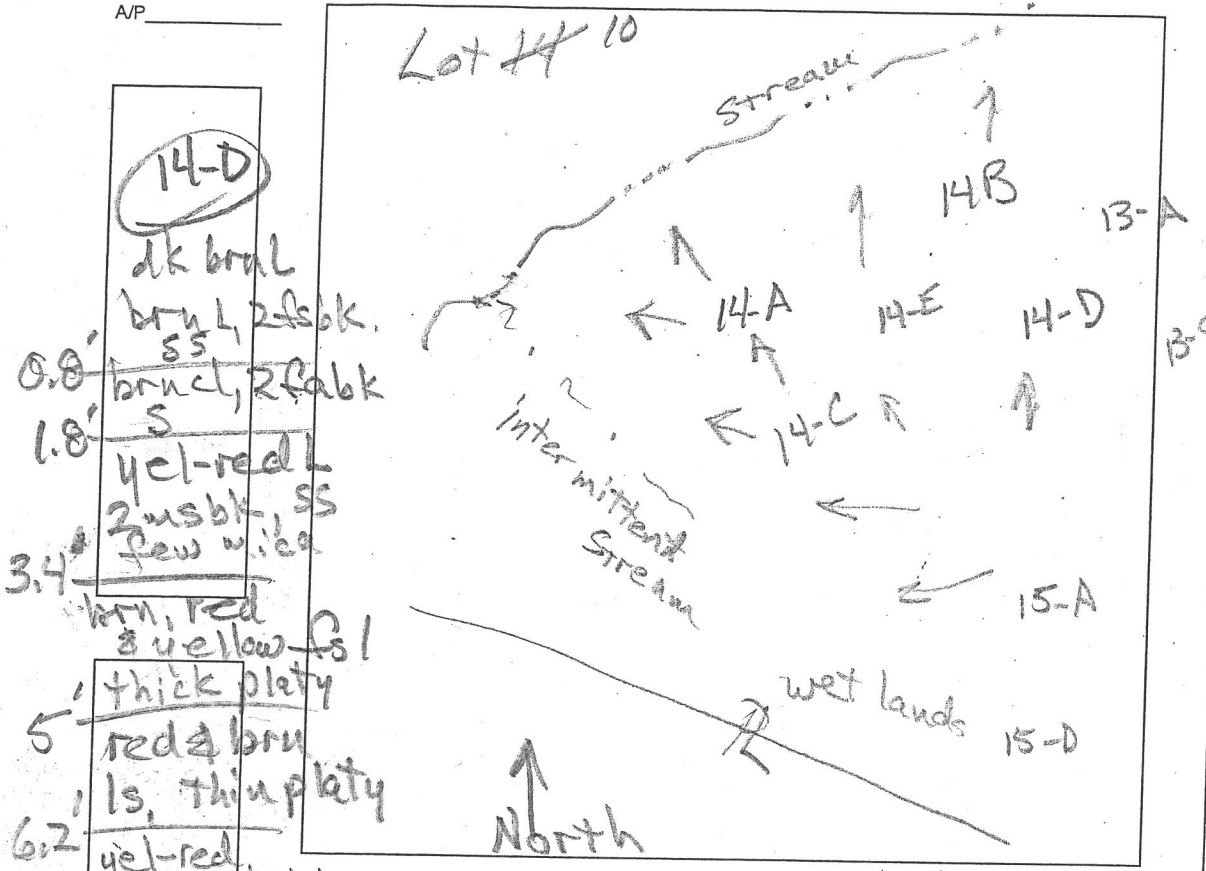 A/P
14-D
dk brn L
brn L, 2fsbk.
ss
0.8'
brn cl, 2fabk
s
1.8'
yel-red L
2msbk, ss
few mica
3.4'
brn, red
& yellow fsl
thick platy
5'
red & brn
ls, thin platy
6.2'
yel-red.
Lot 14 10
stream
14B
13-A
14-A
14-E
14-D
13-
14-C
?
?
intermittent
Stream
15-A
wetlands
15-D
PL
North